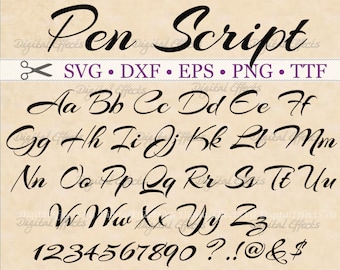 Pen Script
SVG • DXF • EPS • PNG • TTF
Aa Bb Cc Dd Ee Ff
Gg Hh Ii Jj Kk Ll Mm
Nn Oo Pp Qq Rr Ss Tt Uu
Vv Ww Xx Yy Zz
1234567890 ?.!@&$